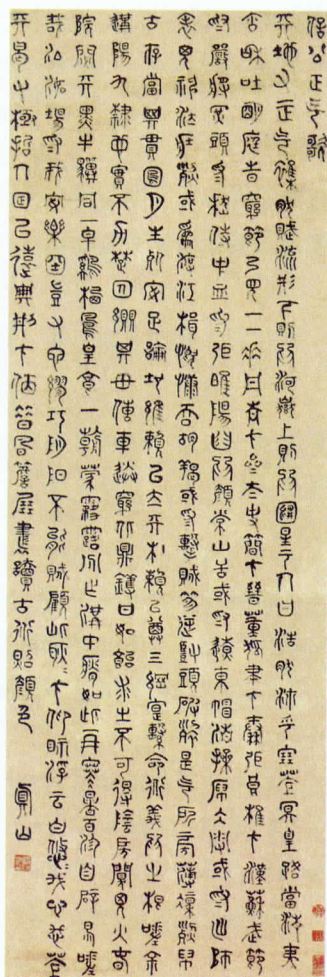 信公正气歌
天地又正气襍然賦流形下則為河嶽上則為日星于人曰浩然沛乎塞蒼冥皇路當清夷
含和吐明庭時窮節乃見一一垂丹青在齊太史簡在晉董狐筆在秦張良椎在漢蘇武節
為嚴將軍頭為嵇侍中血為張睢陽齒為顏常山舌或為遼東帽清操厲冰雪或為出師
表鬼神泣壯烈或為渡江楫慷慨吞胡羯或為擊賊笏逆豎頭破裂是气所旁薄凜烈萬
古存當其貫日月生死安足論地維賴以立天柱賴以尊三綱實繫命道義為之根嗟余
遘陽九隸也實不力楚囚纓其冠傳車送窮北鼎鑊甘如飴求之不可得陰房闃鬼火春
院閟天黑牛驥同一皁雞棲鳳皇食一朝蒙霧露分作溝中瘠如此再寒暑百沴自辟易嗟
哉沮洳場為我安樂國豈又它繆巧陰陽不能賊顧此耿耿在仰視浮云白悠悠我心悲蒼
天曷有極哲人日已遠典刑在夙昔風簷展書讀古道照顏色 真山